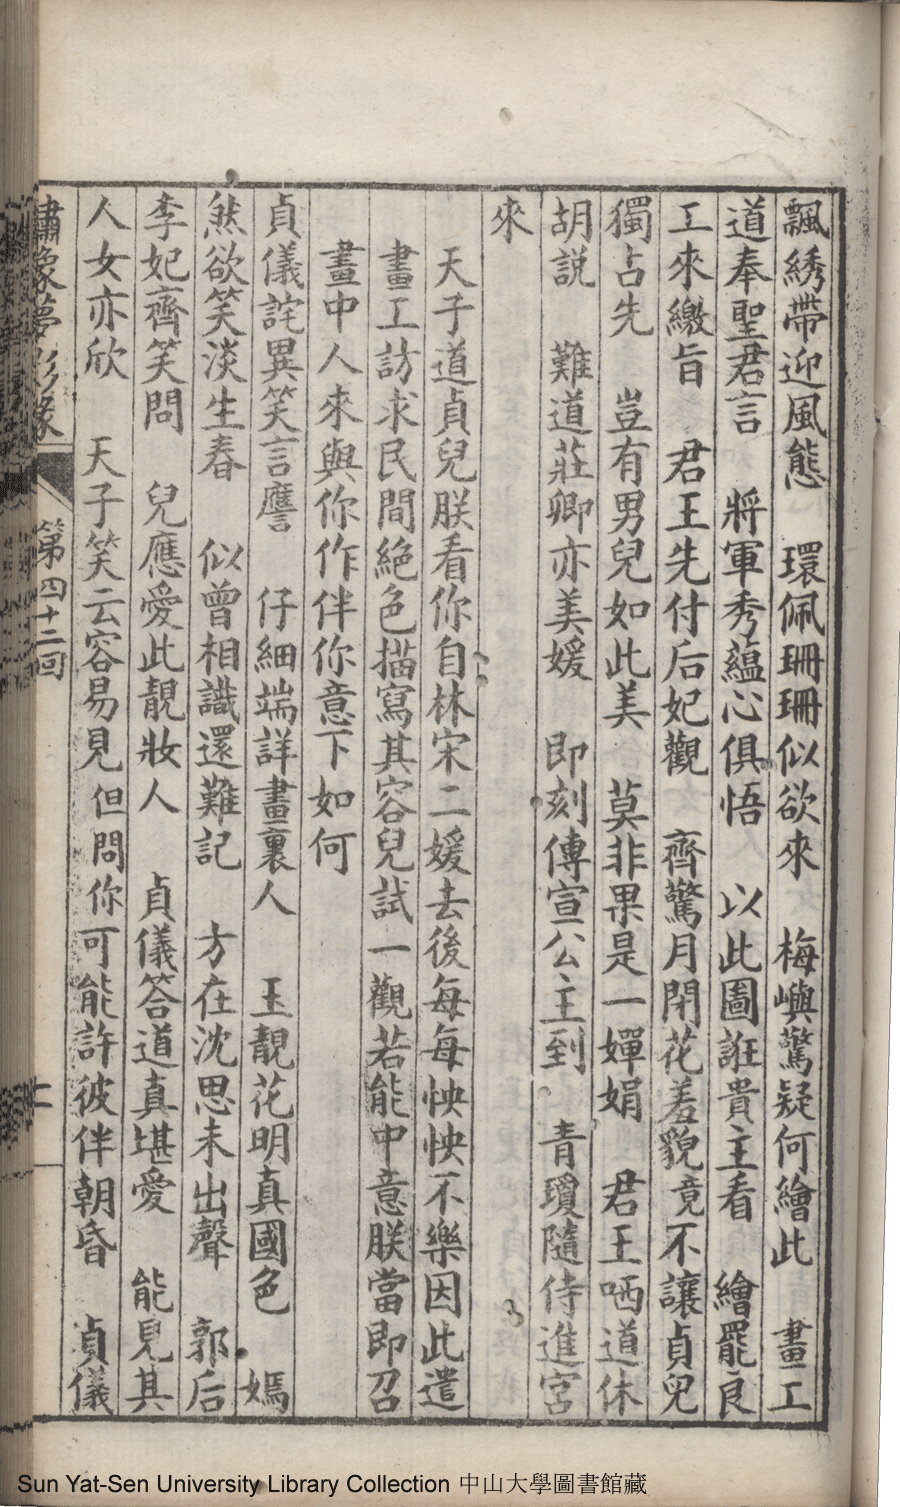 飄綉帶迎風態　環佩珊珊似欲來　梅嶼驚疑何繪此　畫工
道奉聖君言　將軍秀蘊心俱悟　以此圖誑貴主看　繪罷良
工來繳旨　君王先付后妃觀　齊驚月閉花羞貌竟不讓貞兒
獨占先　豈有男兒如此美　莫非果是一嬋娟　君王哂道休
胡説　難道莊卿亦美媛　即刻傳宣公主到　青瓊隨侍進宮
來
天子道貞兒朕看你自林宋二媛去後每每怏怏不樂因此遣
畫工訪求民間絕色描寫其容皃試一觀若能中意朕當即召
畫中人來與你作伴你意下如何
貞儀詫異笑言譍　仔細端詳畫裏人　玉靚花明真國色　嫣
然欲笑淡生春　似曾相識還難記　方在沈思未出聲　郭后
李妃齊笑問　兒應愛此靚妝人　貞儀答道真堪愛　能兒其
人女亦欣　天子笑云容易見但問你可能許彼伴朝昏　貞儀
繡像夢影緣　第四十二回　七
Sun Yat-Sen University Library Collection 中山大學圖書館藏